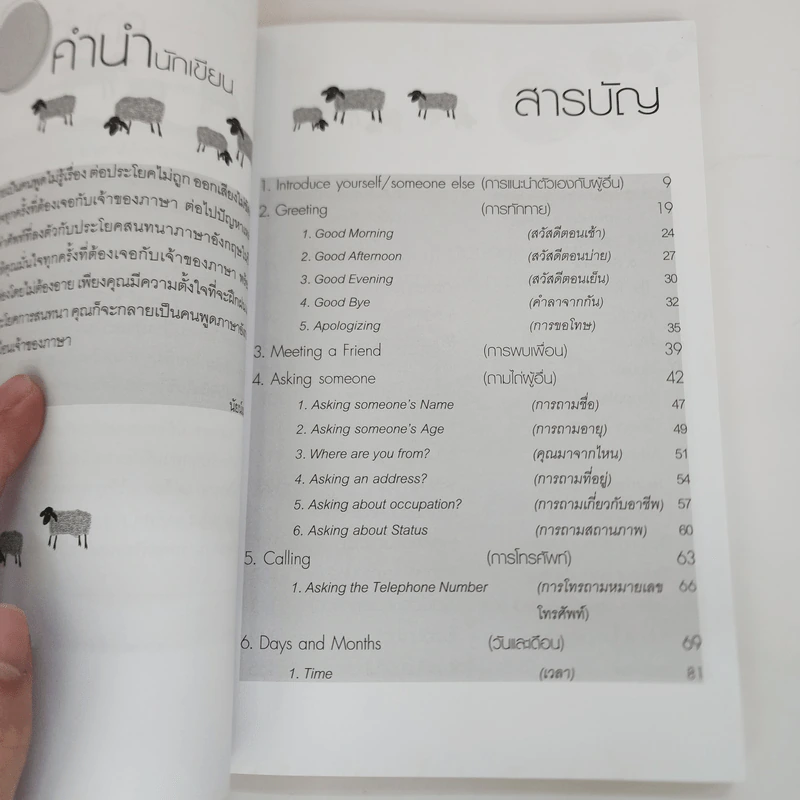 คำนำนักเขียน
เป็นคนพูดไม่รู้เรื่อง ต่อประโยคไม่ถูก ออกเสียงไม่
ทุกครั้งที่ต้องเจอกับเจ้าของภาษา ต่อไปปัญหา
ศัพท์ที่ลงตัวกับประโยคสนทนาภาษาอังกฤษ
คุณมั่นใจทุกครั้งที่ต้องเจอกับเจ้าของภาษา
โดยไม่ต้องอาย เพียงคุณมีความตั้งใจที่จะฝึก
โยคการสนทนา คุณก็จะกลายเป็นคนพูดภาษา
เจ้าของภาษา
สารบัญ
1. Introduce yourself/someone else (การแนะนำตัวเองกับผู้อื่น) 9
2. Greeting (การทักทาย) 19
1. Good Morning (สวัสดีตอนเช้า) 24
2. Good Afternoon (สวัสดีตอนบ่าย) 27
3. Good Evening (สวัสดีตอนเย็น) 30
4. Good Bye (คำลาจากกัน) 32
5. Apologizing (การขอโทษ) 35
3. Meeting a Friend (การพบเพื่อน) 39
4. Asking someone (ถามไถ่ผู้อื่น) 42
1. Asking someone's Name (การถามชื่อ) 47
2. Asking someone's Age (การถามอายุ) 49
3. Where are you from? (คุณมาจากไหน) 51
4. Asking an address? (การถามที่อยู่) 54
5. Asking about occupation? (การถามเกี่ยวกับอาชีพ) 57
6. Asking about Status (การถามสถานภาพ) 60
5. Calling (การโทรศัพท์) 63
1. Asking the Telephone Number (การโทรถามหมายเลข 66
โทรศัพท์)
6. Days and Months (วันและเดือน) 69
1. Time (เวลา) 81